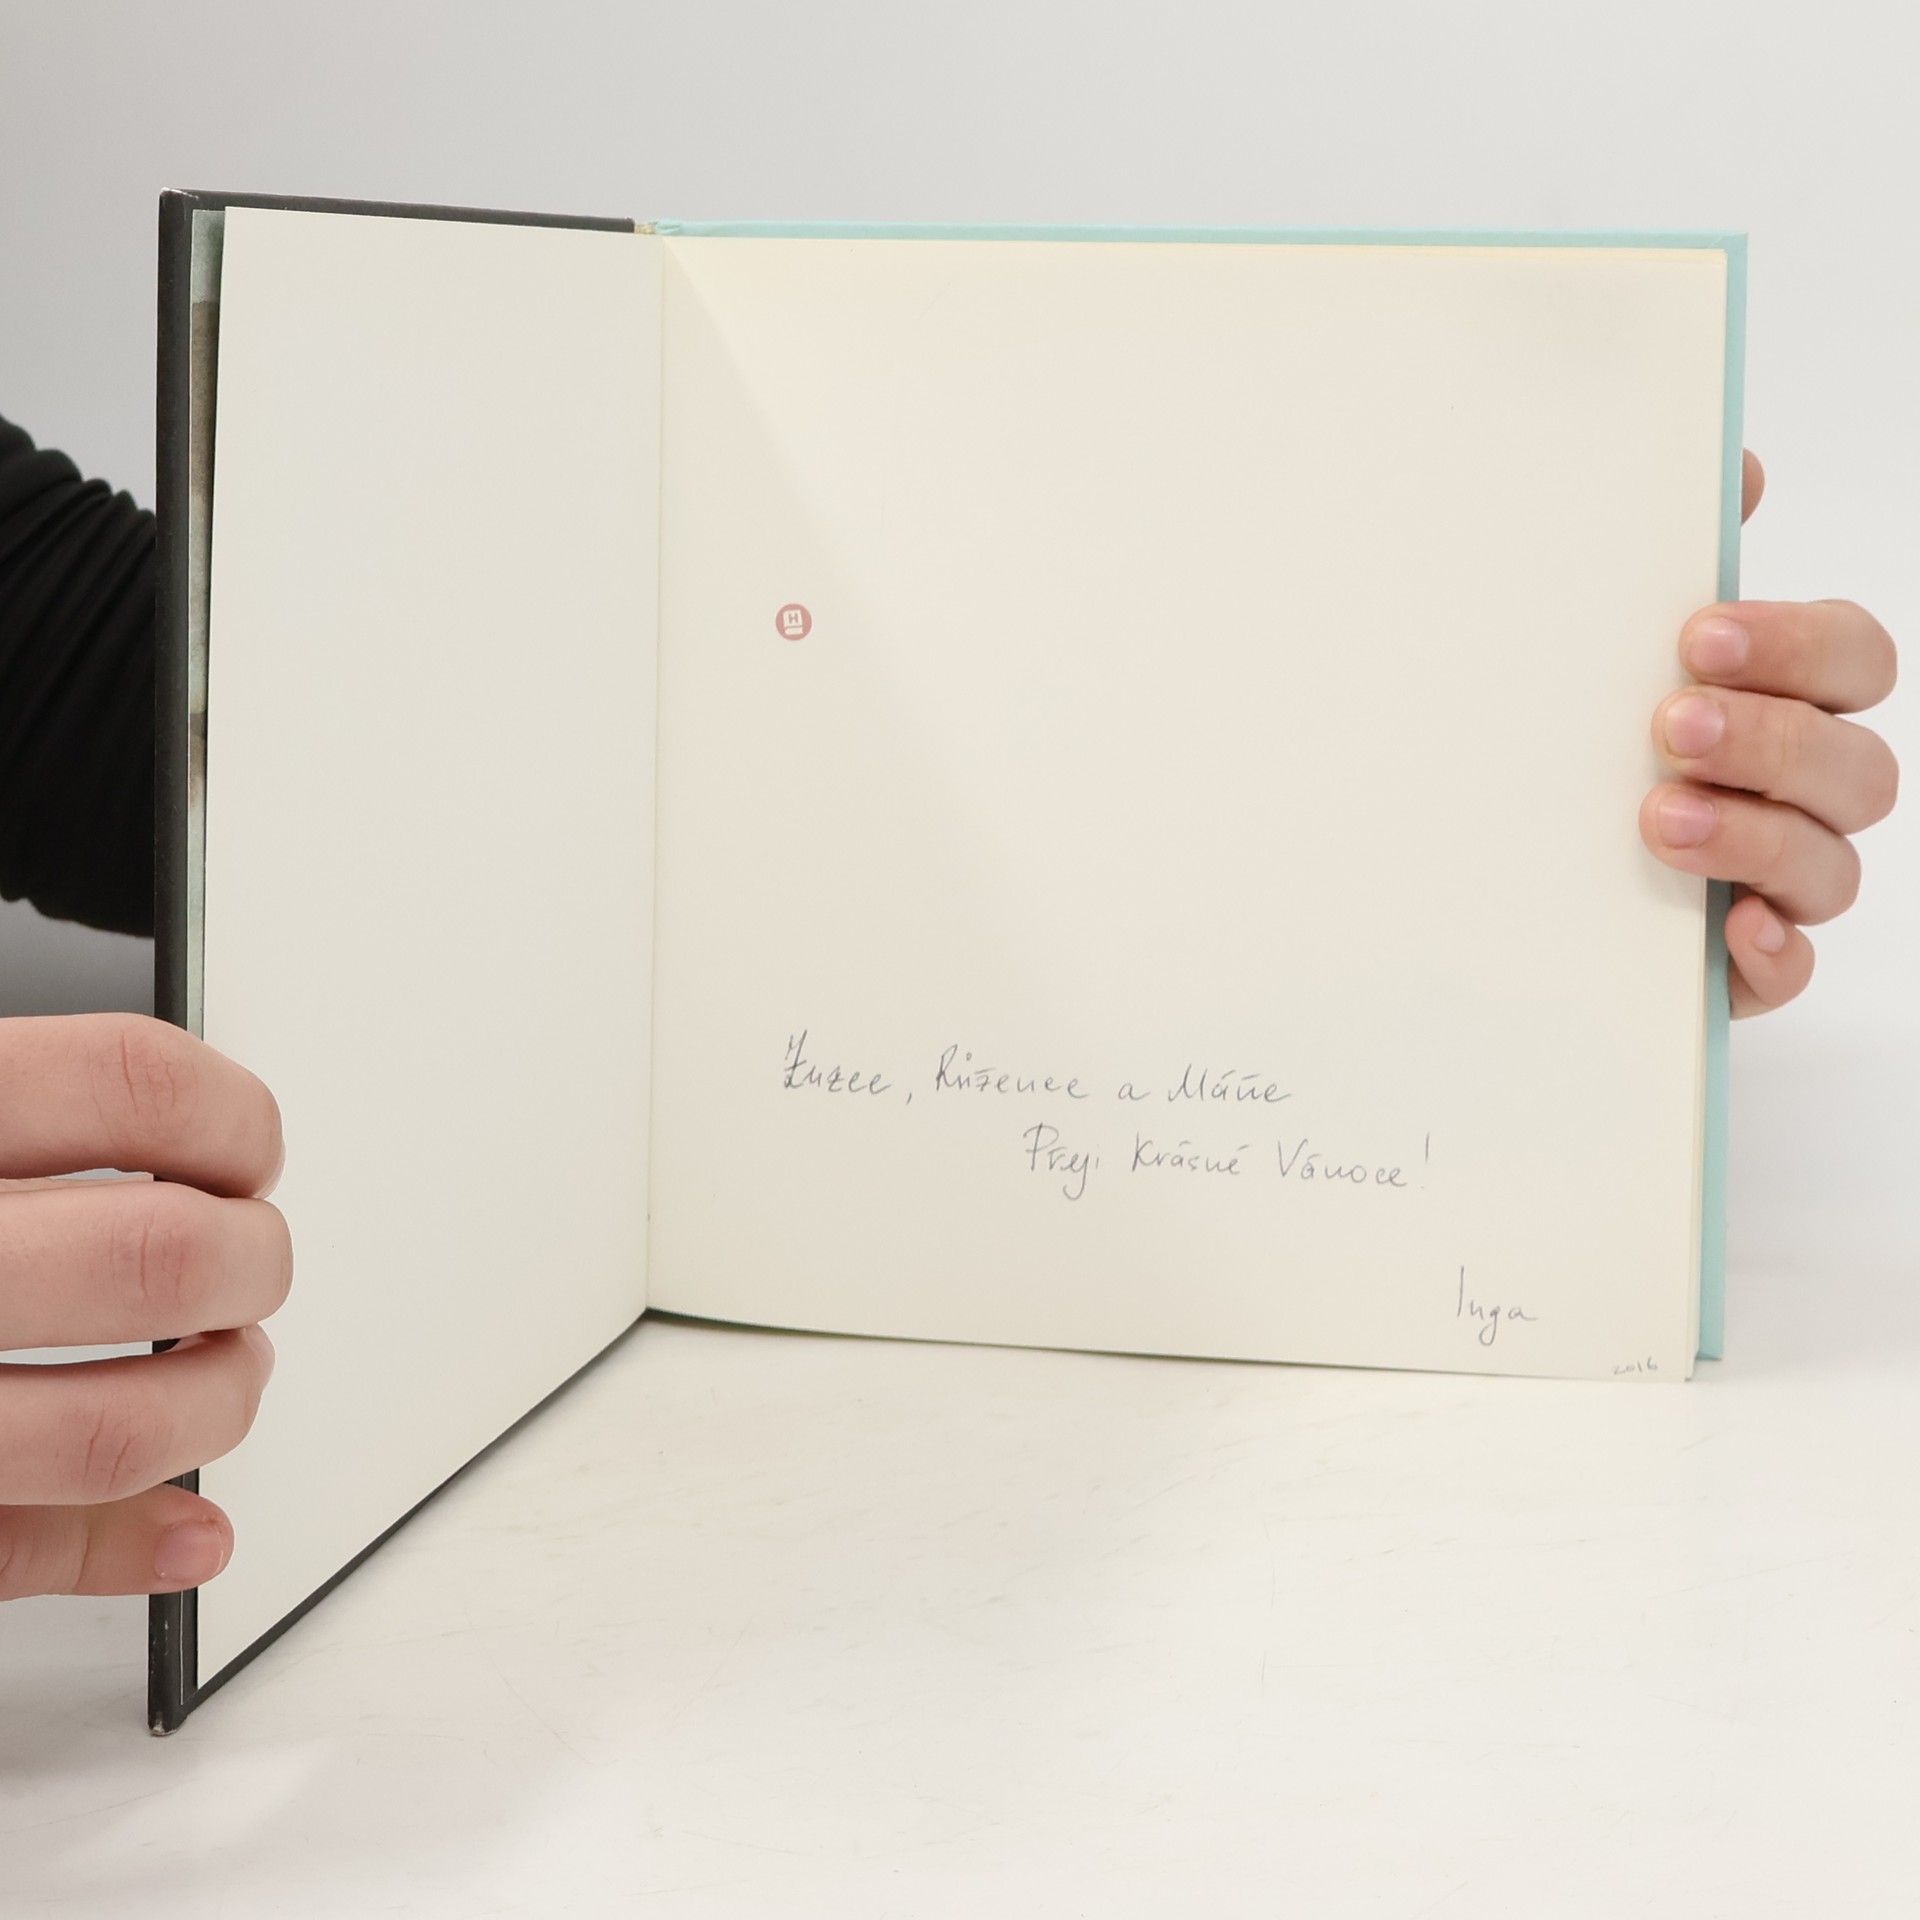 H
Zuzce, Růžence a Máňe
Přeji Krásné Vánoce!
Inga
2016